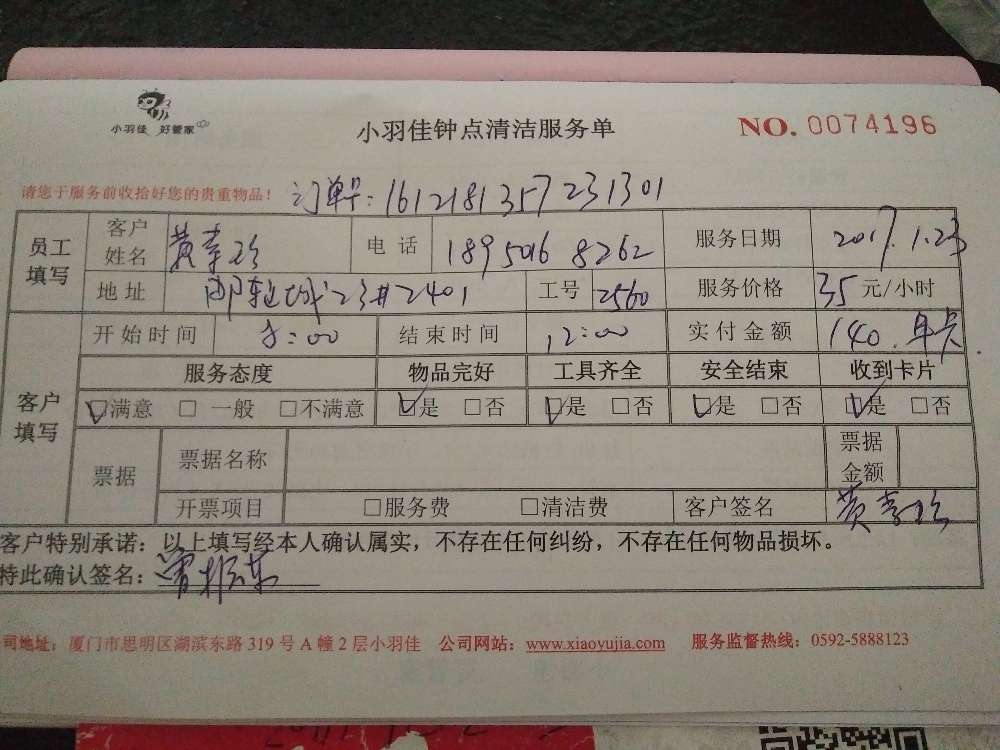 小羽佳 好管家
小羽佳钟点清洁服务单
NO. 0074196
请您于服务前收拾好您的贵重物品！ 订单号：161218135723 1301
员工填写 客户姓名 黄幸珍 电话 18950168262 服务日期 2017.1.23
地址 城23#2401 工号 2560 服务价格 35 元/小时
开始时间 8:00 结束时间 12:00 实付金额 140.年卡
客户填写 服务态度 物品完好 工具齐全 安全结束 收到卡片
☑满意 □一般 □不满意 ☑是 □否 ☑是 □否 ☑是 □否 ☑是 □否
票据 票据名称 票据金额
开票项目 □服务费 □清洁费 客户签名 黄幸珍
客户特别承诺：以上填写经本人确认属实，不存在任何纠纷，不存在任何物品损坏。
特此确认签名：
司地址：厦门市思明区湖滨东路319号A幢2层小羽佳 公司网站：www.xiaoyujia.com 服务监督热线：0592-5888123